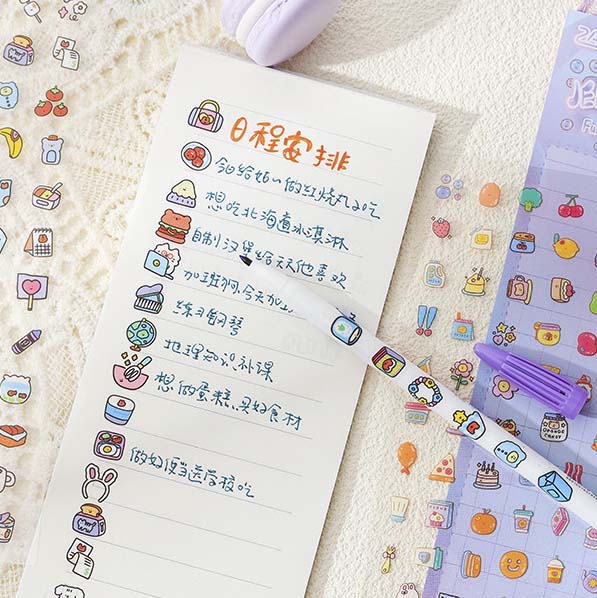 日程安排
今日给奶奶做红烧丸子吃
想吃北海道冰淇淋
自制汉堡给天天他喜欢
加班狗,今天加
练习钢琴
地理知识补课
想做蛋糕,买好食材
做好便当送学校吃